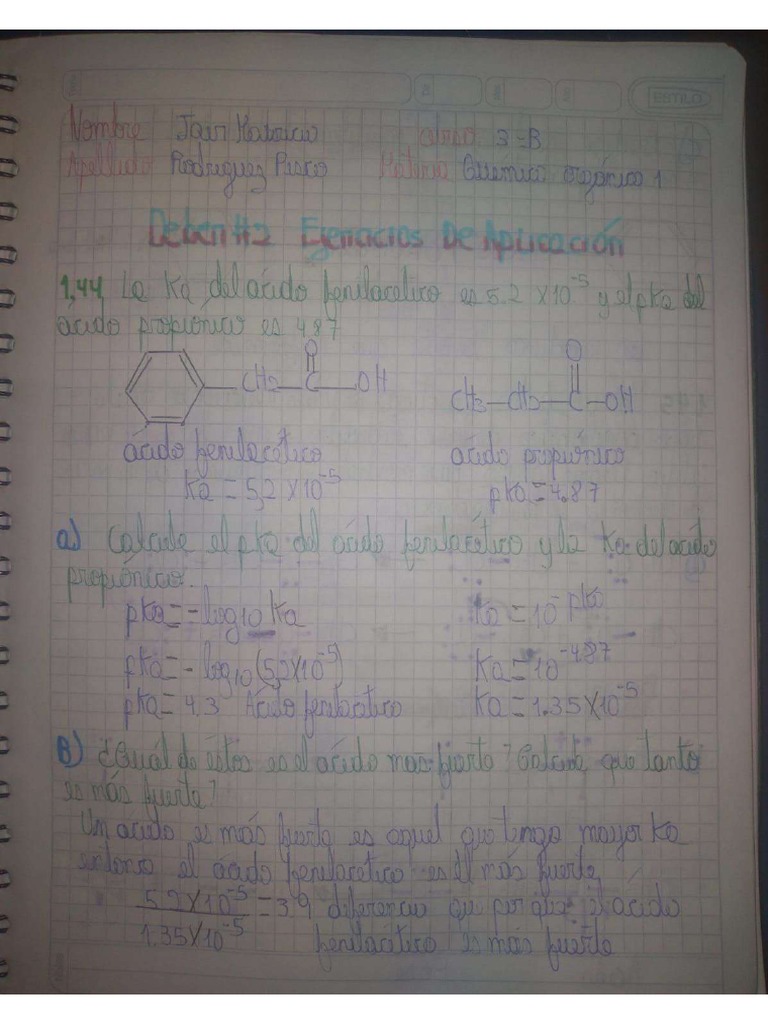 ESTILO
Nombre Jair Mauricio Curso 3-B
Apellido Rodriguez Pisco Materia Química orgánica 1
Deber #2 Ejercicios De Aplicación
1,44 La Ka del ácido fenilacético es 5,2 x 10⁻⁵ y el pka del
ácido propiónico es 4,87
O O
CH2 C OH CH3 CH2 C OH
ácido fenilacético ácido propiónico
Ka = 5,2 x 10⁻⁵ pka = 4.87
a) Calcule el pka del ácido fenilacético y la Ka del ácido
propiónico.
pka = -log10 Ka Ka = 10^-pka
pka = -log10 (5,2x10⁻⁵) Ka = 10^-4.87
pka = 4,3 Ácido fenilacético Ka = 1.35x10⁻⁵
B) ¿Cuál de éstos es el ácido mas fuerte? Calcule que tanto
es más fuerte?
Un ácido es más fuerte es aquel que tenga mayor Ka
entonces el ácido fenilacético es el más fuerte
5,2 x 10⁻⁵ = 3,9 diferencia que el ácido
1.35 x 10⁻⁵ fenilacético es más fuerte